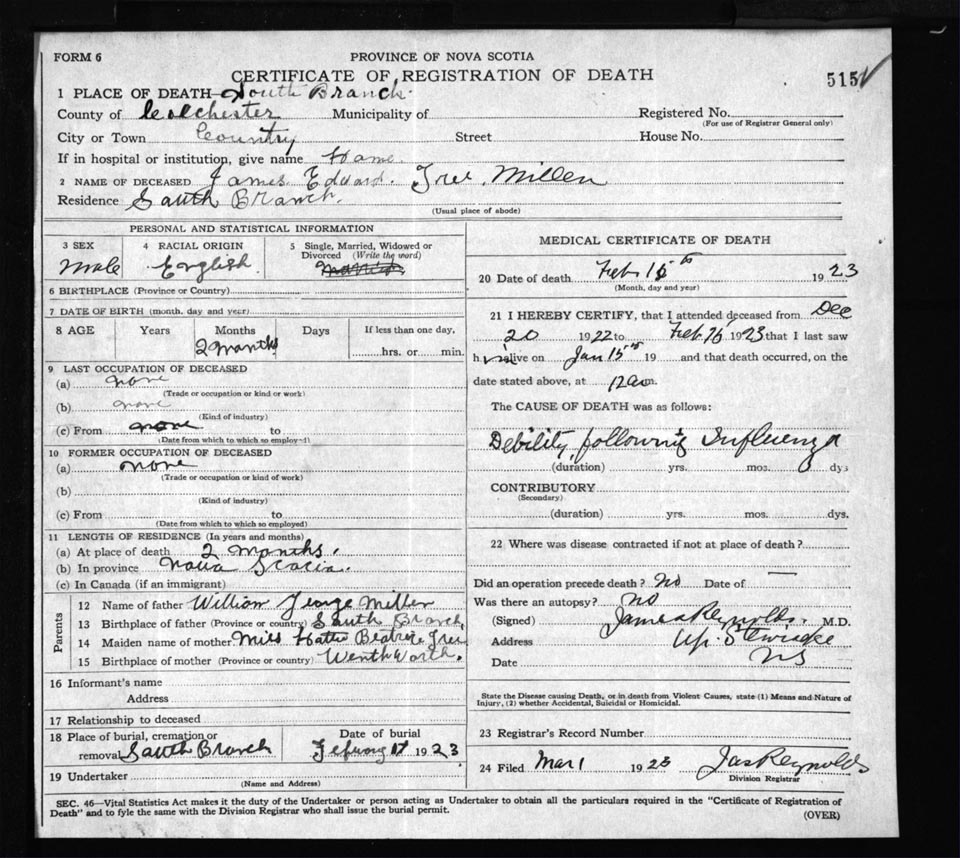 FORM 6
PROVINCE OF NOVA SCOTIA
CERTIFICATE OF REGISTRATION OF DEATH
515
1 PLACE OF DEATH—South Branch
County of Colchester Municipality of Registered No.
(For use of Registrar General only)
City or Town Country Street House No.
If in hospital or institution, give name Home
2 NAME OF DECEASED James Edward. Miller
Residence South Branch.
(Usual place of abode)
PERSONAL AND STATISTICAL INFORMATION
3 SEX
Male
4 RACIAL ORIGIN
English
5 Single, Married, Widowed or
Divorced (Write the word)
6 BIRTHPLACE (Province or Country)
7 DATE OF BIRTH (month, day and year)
8 AGE Years Months Days If less than one day,
2 months hrs. or min.
9 LAST OCCUPATION OF DECEASED
(a) none
(Trade or occupation or kind or work)
(b) none
(Kind of industry)
(c) From none to
(Date from which to which so employed)
10 FORMER OCCUPATION OF DECEASED
(a) none
(Trade or occupation or kind of work)
(b)
(Kind of industry)
(c) From to
(Date from which to which so employed)
11 LENGTH OF RESIDENCE (In years and months)
(a) At place of death 2 months.
(b) In province Nova Scocia.
(c) In Canada (if an immigrant)
Parents
12 Name of father William George Miller
13 Birthplace of father (Province or country) South Branch
14 Maiden name of mother Miss Beatrice
15 Birthplace of mother (Province or country) Wenthworth.
16 Informant's name
Address
17 Relationship to deceased
18 Place of burial, cremation or
removal South Branch
Date of burial
1923
19 Undertaker
(Name and Address)
MEDICAL CERTIFICATE OF DEATH
20 Date of death Feb 1923
(Month, day and year)
21 I HEREBY CERTIFY, that I attended deceased from Dec
20 1922 to Feb 1923 that I last saw
h alive on Jan 15th 19 and that death occurred, on the
date stated above, at m.
The CAUSE OF DEATH was as follows:
Debility following Influenza
(duration) yrs. mos. dys
CONTRIBUTORY
(Secondary)
(duration) yrs. mos. dys.
22 Where was disease contracted if not at place of death?
Did an operation precede death? No Date of —
Was there an autopsy? No
(Signed) James Reynolds. M.D.
Address Up. Stewiacke
Date NS
State the Disease causing Death, or in death from Violent Causes, state (1) Means and Nature of
Injury, (2) whether Accidental, Suicidal or Homicidal.
23 Registrar's Record Number
24 Filed Mar 1 1923 Jas Reynolds
Division Registrar
SEC. 46—Vital Statistics Act makes it the duty of the Undertaker or person acting as Undertaker to obtain all the particulars required in the "Certificate of Registration of
Death" and to fyle the same with the Division Registrar who shall issue the burial permit.
(OVER)